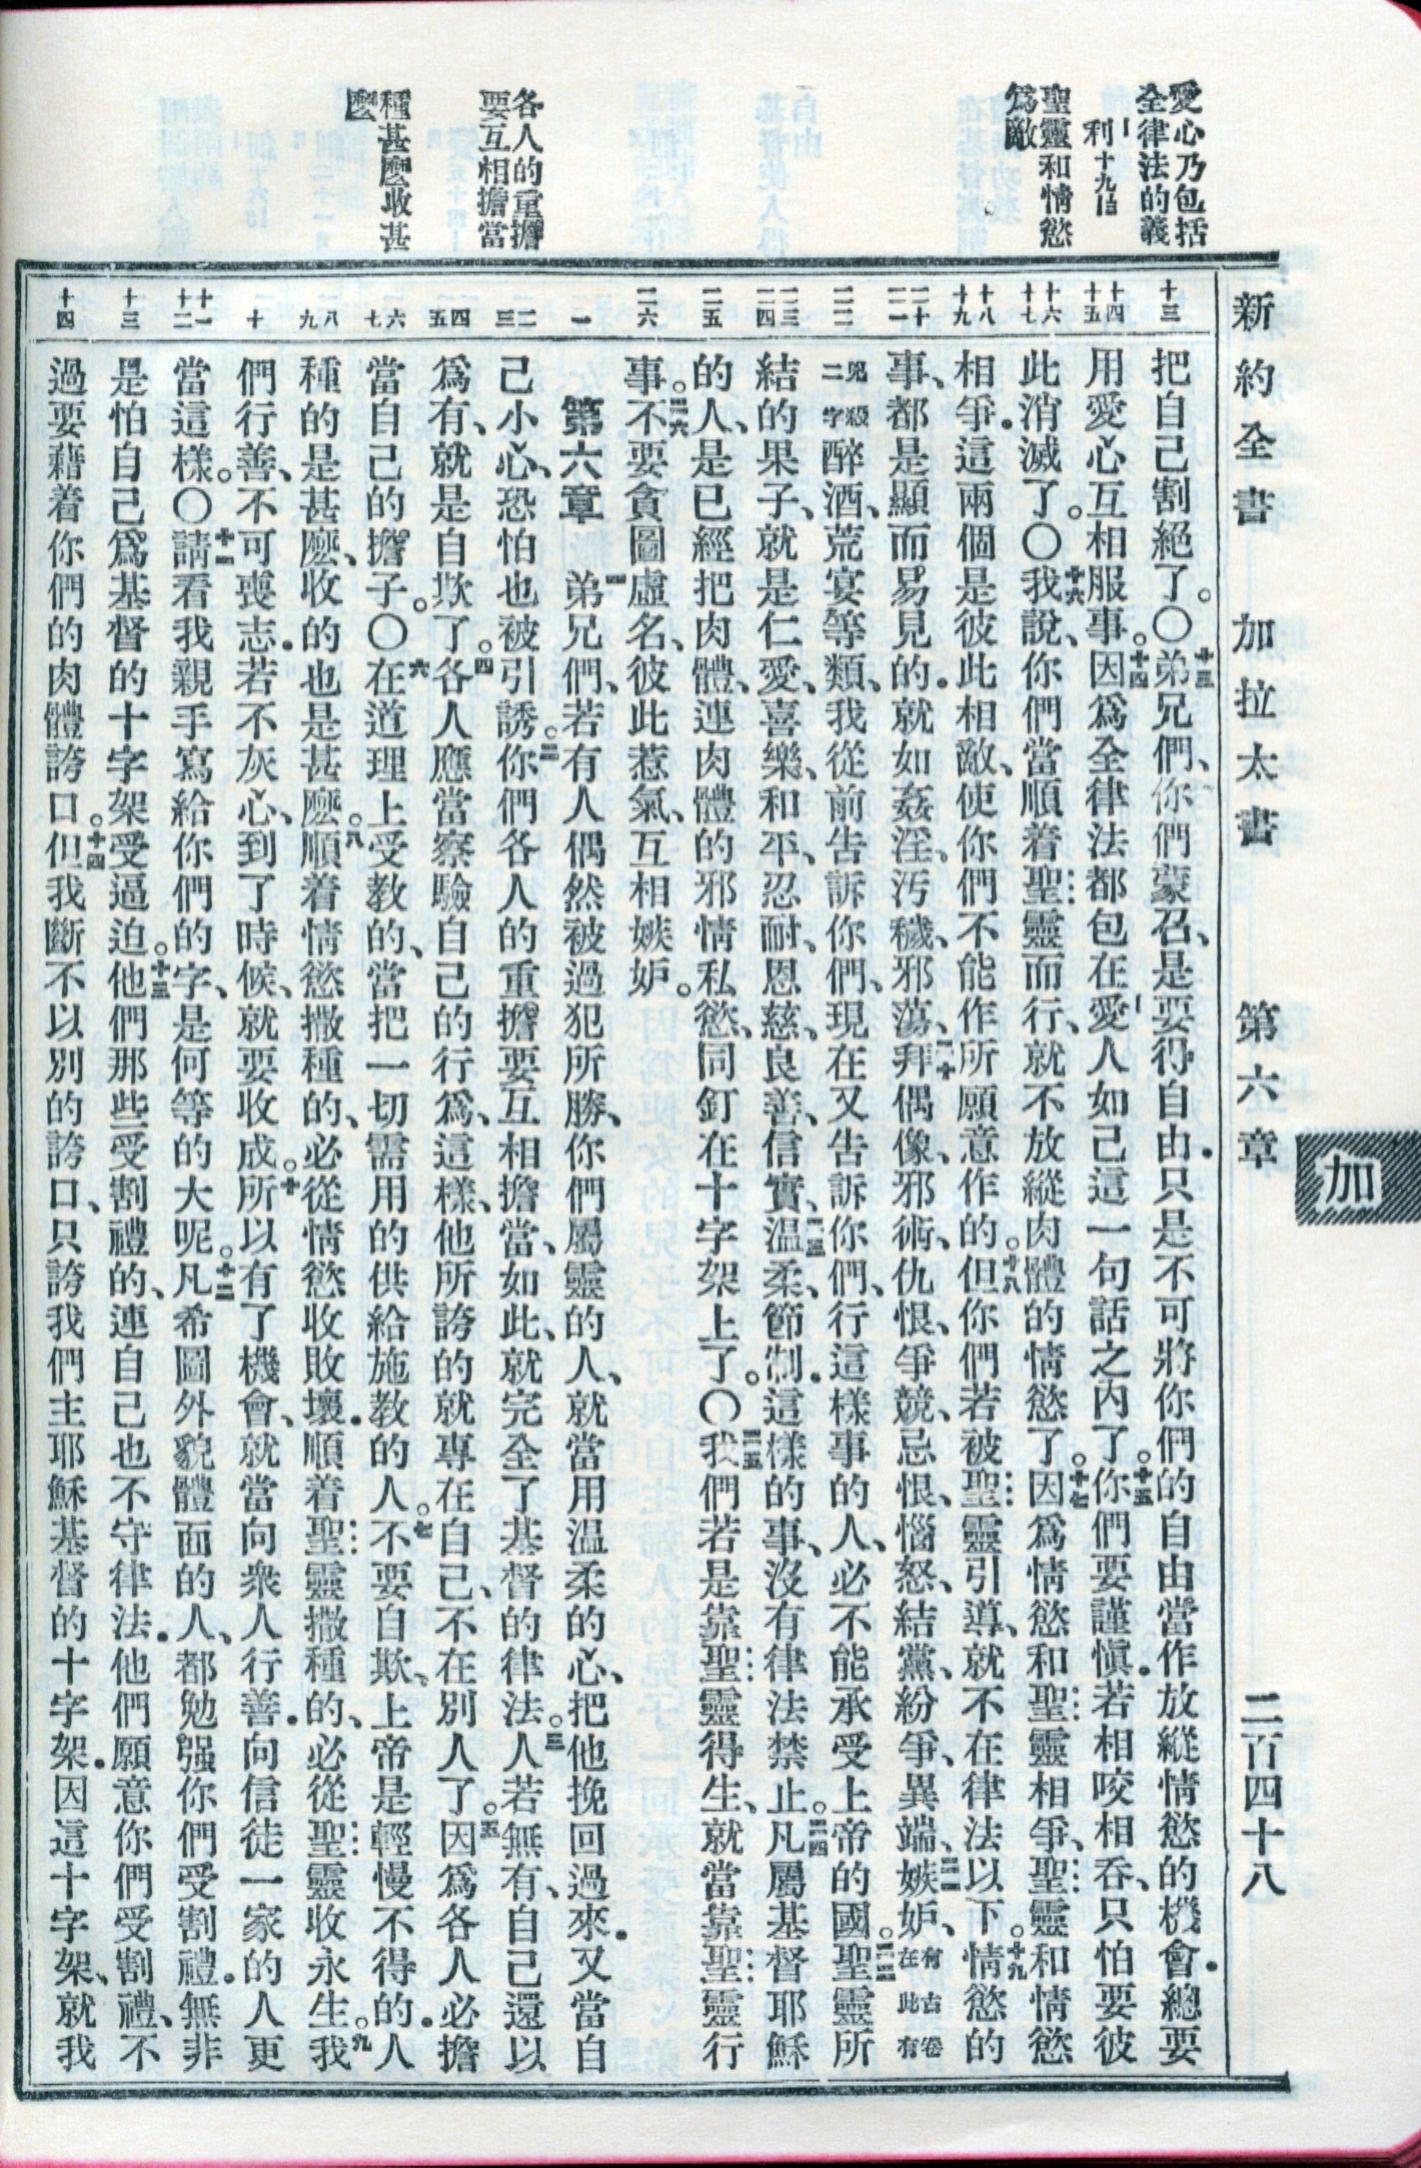 新約全書　加拉太書　第六章　二百四十八
加
愛心乃包括
全律法的義
利十九18
聖靈和情慾
爲敵
各人的重擔
要互相擔當
種甚麼收甚
麼
十三
十四 十五
十六 十七
十八 十九
二十 二一
二二
二三 二四
二五
二六
一
二 三
四 五
六 七
八 九
十
十一 十二
十三
十四
把自己割絕了。〇十三弟兄們、你們蒙召、是要得自由．只是不可將你們的自由當作放縱情慾的機會．總要
用愛心互相服事。十四因爲全律法都包在愛人如己這一句話之內了。十五你們要謹愼．若相咬相吞、只怕要彼
此消滅了。〇十六我說、你們當順着聖靈而行、就不放縱肉體的情慾了。十七因爲情慾和聖靈相爭、聖靈和情慾
相爭．這兩個是彼此相敵、使你們不能作所願意作的。十八但你們若被聖靈引導、就不在律法以下。十九情慾的
事、都是顯而易見的．就如姦淫、汚穢、邪蕩、二十拜偶像、邪術、仇恨、爭競、忌恨、惱怒、結黨、紛爭、異端、二一嫉妒、有古卷在此有
兇殺二字醉酒、荒宴等類、我從前告訴你們、現在又告訴你們、行這樣事的人、必不能承受上帝的國。二二聖靈所
結的果子、就是仁愛、喜樂、和平、忍耐、恩慈、良善、信實、二三溫柔、節制．這樣的事、沒有律法禁止。二四凡屬基督耶穌
的人、是已經把肉體、連肉體的邪情私慾、同釘在十字架上了。〇二五我們若是靠聖靈得生、就當靠聖靈行
事。二六不要貪圖虛名、彼此惹氣、互相嫉妒。
第六章　一弟兄們、若有人偶然被過犯所勝、你們屬靈的人、就當用溫柔的心、把他挽回過來．又當自
己小心、恐怕也被引誘。二你們各人的重擔要互相擔當、如此、就完全了基督的律法。三人若無有、自己還以
爲有、就是自欺了。四各人應當察驗自己的行爲、這樣、他所誇的就專在自己、不在別人了。五因爲各人必擔
當自己的擔子。〇六在道理上受教的、當把一切需用的供給施教的人。七不要自欺、上帝是輕慢不得的．人
種的是甚麼、收的也是甚麼。八順着情慾撒種的、必從情慾收敗壞．順着聖靈撒種的、必從聖靈收永生。九我
們行善、不可喪志．若不灰心、到了時候、就要收成。十所以有了機會、就當向衆人行善．向信徒一家的人更
當這樣。〇十一請看我親手寫給你們的字、是何等的大呢。十二凡希圖外貌體面的人、都勉强你們受割禮．無非
是怕自己爲基督的十字架受逼迫。十三他們那些受割禮的、連自己也不守律法．他們願意你們受割禮、不
過要藉着你們的肉體誇口。十四但我斷不以別的誇口、只誇我們主耶穌基督的十字架．因這十字架、就我